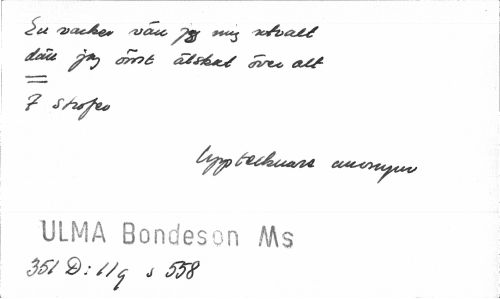 En vacker vän jag mig utvalt
den jag ömt älskat över allt
7 strofer
Upptecknare anonym
ULMA Bondeson Ms
351 D:11q s 558